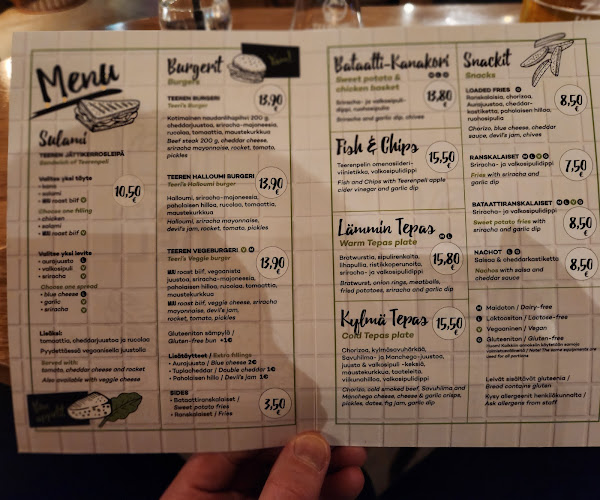 Menu
Sulami
TEEREN JÄTTIKERROSLEIPÄ
Sandwich of Teerenpeli
Valitse yksi täyte
• kana
• salami
• roast biif
Choose one filling
• chicken
• salami
• roast biif
10,50 €
Valitse yksi levite
• aurajuusto
• valkosipuli
• sriracha
Choose one spread
• blue cheese
• garlic
• sriracha
Lisäksi:
tomaattia, cheddarjuustoa ja rucolaa
Pyydettäessä vegaanisella juustolla
Served with:
tomato, cheddar cheese and rocket
Also available with veggie cheese
Bon appetit
Burgerit
Burgers
TEEREN BURGERI
Teeri's Burger
13,90 €
Kotimainen naudanlihapihvi 200 g,
cheddarjuustoa, sriracha-majoneesia,
rucolaa, tomaattia, maustekurkkua
Beef steak 200 g, cheddar cheese,
sriracha mayonnaise, rocket, tomato,
pickles
TEEREN HALLOUMI BURGERI
Teeri's Halloumi burger
13,90 €
Halloumi, sriracha-majoneesia,
paholaisen hilloa, rucolaa, tomaattia,
maustekurkkua
Halloumi, sriracha mayonnaise,
devil's jam, rocket, tomato, pickles
TEEREN VEGEBURGERI
Teeri's Veggie burger
13,90 €
roast biif, vegaanista
juustoa, sriracha-majoneesia,
paholaisen hilloa, rucolaa, tomaattia,
maustekurkkua
roast biif, veggie cheese, sriracha
mayonnaise, devil's jam,
rocket, tomato, pickles
Gluteeniton sämpylä /
Gluten-free bun +1€
Lisätäytteet / Extra fillings
• Aurajuusto / Blue cheese 2€
• Tuplacheddar / Double cheddar 1€
• Paholaisen hillo / Devil's jam 1€
SIDES
• Bataattiranskalaiset /
Sweet potato fries
• Ranskalaiset / Fries
3,50 €
Bataatti-Kanakori
Sweet potato &
chicken basket
13,80 €
Sriracha- ja valkosipuli-
dippi, ruohosipulia
Sriracha and garlic dip, chives
Fish & Chips
15,50 €
Teerenpelin omenasiideri-
viinietikka, valkosipulidippi
Fish and Chips with Teerenpeli apple
cider vinegar and garlic dip
Lämmin Tepas
Warm Tepas plate
15,80 €
Bratwurstia, sipulirenkaita,
lihapullia, ristikkoperunoita,
sriracha- ja valkosipulidippi
Bratwurst, onion rings, meatballs,
fried potatoes, sriracha and garlic dip
Kylmä Tepas
Cold Tepas plate
15,50 €
Chorizoa, kylmäsavuhärkää,
Savuhilma- ja Manchego-juustoa,
juusto & valkosipuli -keksiä,
maustekurkkua, taateleita,
viikunahilloa, valkosipulidippi
Chorizo, cold smoked beef, Savuhilma and
Monchego cheese, cheese & garlic crisps,
pickles, dates, fig jam, garlic dip
Snackit
Snacks
LOADED FRIES
Ranskalaisia, chorizoa,
Aurajuustoa, cheddar-
kastiketta, paholaisen hilloa,
ruohosipulia
8,50 €
Chorizo, blue cheese, cheddar
sauce, devil's jam, chives
RANSKALAISET
Sriracha- ja valkosipulidippi
Fries with sriracha
and garlic dip
7,50 €
BATAATTIRANSKALAISET
Sriracha- ja valkosipulidippi
Sweet potato fries with
sriracha and garlic dip
8,50 €
NACHOT
Salsaa & cheddarkastiketta
Nachos with salsa and
cheddar sauce
8,50 €
Maidoton / Dairy-free
Laktoositon / Lactose-free
Vegaaninen / Vegan
Gluteeniton / Gluten-free
Leivät sisältävät gluteenia /
Bread contains gluten
Kysy allergeenit henkilökunnalta /
Ask allergens from staff